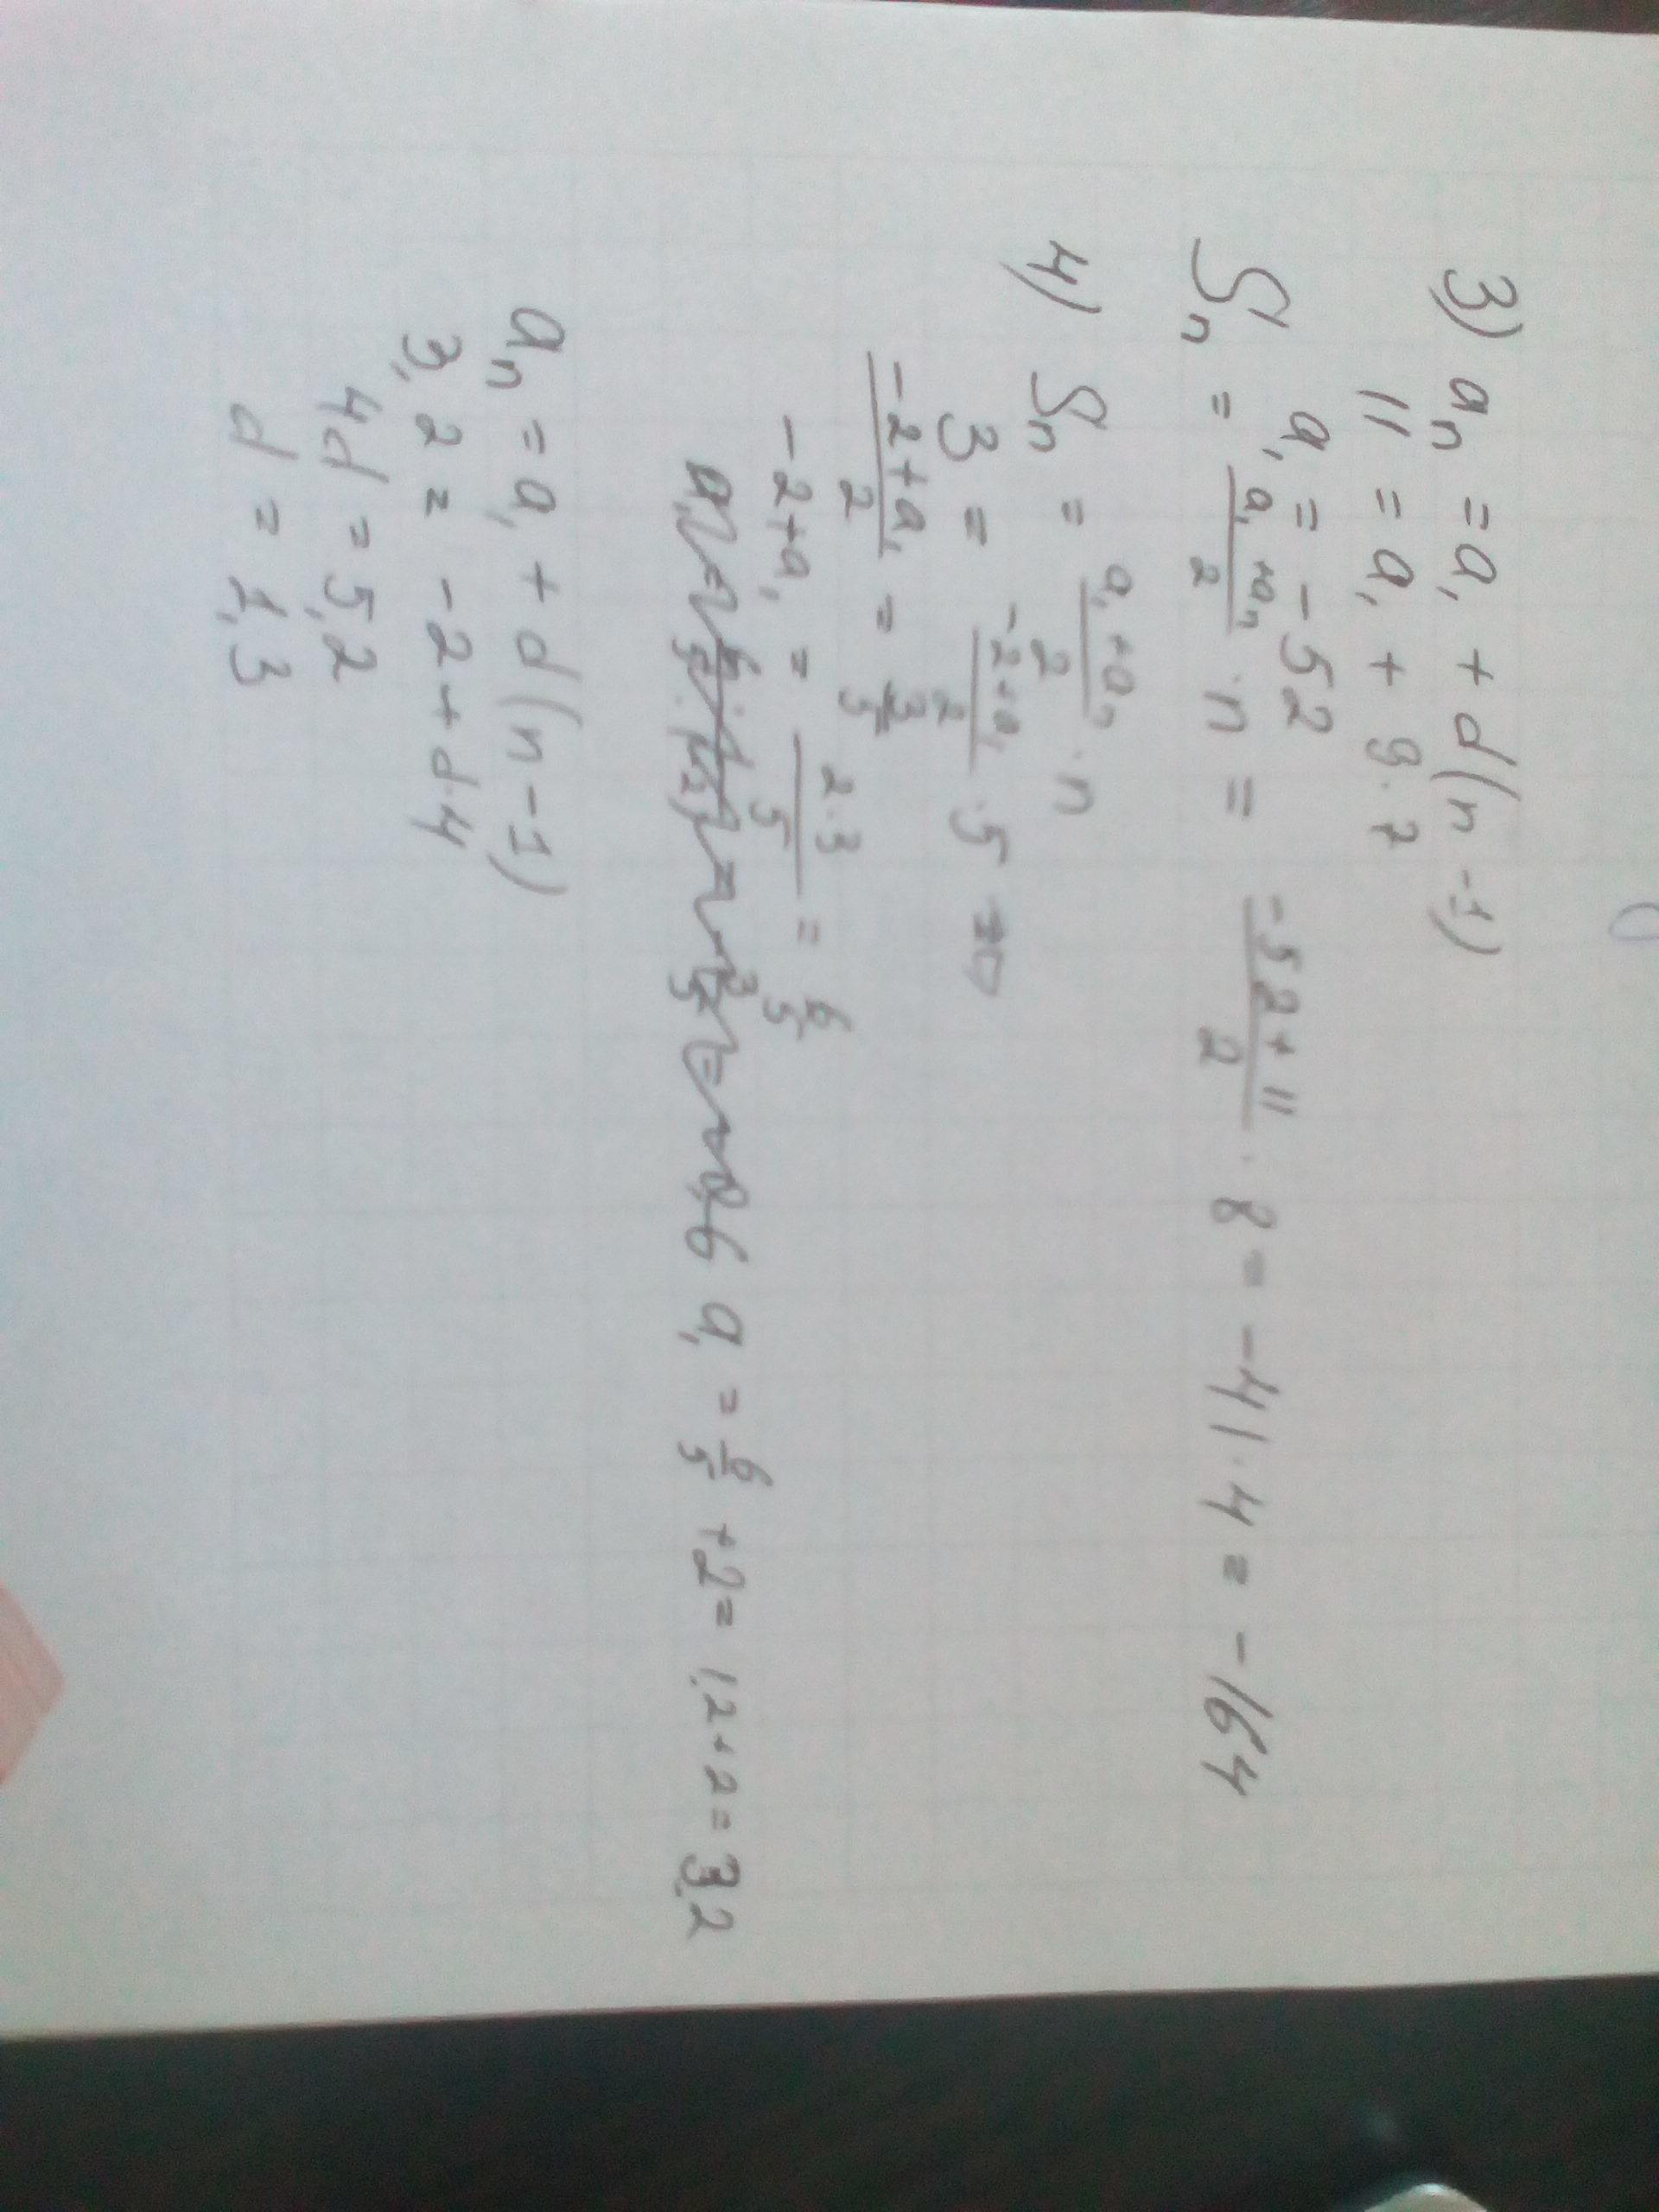 3) aₙ = a₁ + d(n-1)
11 = a₁ + 9·7
a₁ = -52
Sₙ = (a₁+aₙ)/2 · n = (-52+11)/2 · 8 = -41·4 = -164
4) Sₙ = (a₁+aₙ)/2 · n
3 = (-2+a₁)/2 · 5
(-2+a₁)/2 = 3/5
-2+a₁ = 2·3/5 = 6/5
a₁ = 6/5 +2 = 1,2+2 = 3,2
aₙ = a₁ + d(n-1)
3,2 = -2+d·4
4d = 5,2
d = 1,3